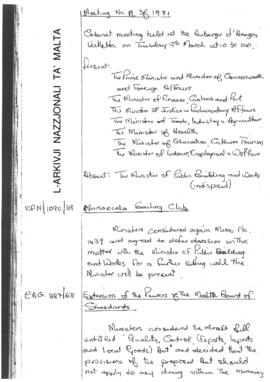 Meeting No. 11 of 1971
Cabinet meeting held at the Auberge d'Aragon
Valletta on Tuesday 9th March at 10.30 am.
Present:
The Prime Minister and Minister of Commonwealth
and Foreign Affairs
The Minister of Finance Customs and Port
The Minister of Justice & Parliamentary Affairs
The Minister of Trade, Industry & Agriculture
The Minister of Health
The Minister of Education Culture Tourism
The Minister of Labour, Employment & Welfare
Absent: The Minister of Public Building and Works
(indisposed)
L-ARKIVJI NAZZJONALI TA' MALTA
OPM/1090/69 Marsascala Sailing Club
Ministers considered again Memo No.
1439 and agreed to defer decision on this
matter with the Minister of Public Building
and Works for a further sitting until the
Minister will be present.
Extension of the Powers of the Malta Board of
Standards
Ministers considered the draft Bill
entitled "Quality Control (Exports, Imports
and Local Goods) Act" and decided that the
provisions of the proposed Act should
not apply to any drug within the meaning